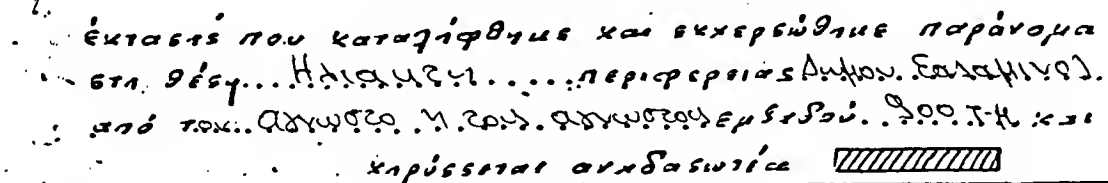 έκτασις που καταλήφθηκε και εκχερσώθηκε παράνομα
στη θέση.... Ηλιακτη .....περιφερείας Δημου. Σαλαμινος.
από τον.. αγνωστο. η τους. αγνωστους εμβαδού. 900. Τ.Μ και
κηρύσσεται αναδασωτέα